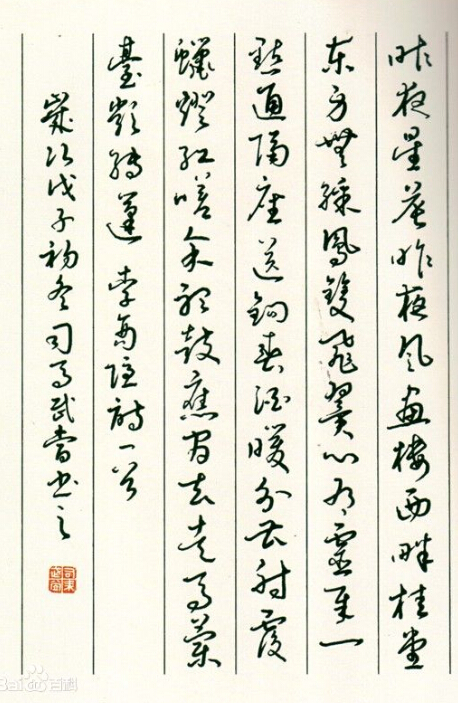 昨夜星辰昨夜風畫樓西畔桂堂
東身無綵鳳雙飛翼心有靈犀一
點通隔座送鉤春酒暖分曹射覆
蠟燈紅嗟余聽鼓應官去走馬蘭
臺類轉蓬 李商隱詩一首
歲次戊子初冬司馬武當書之
Bai百科